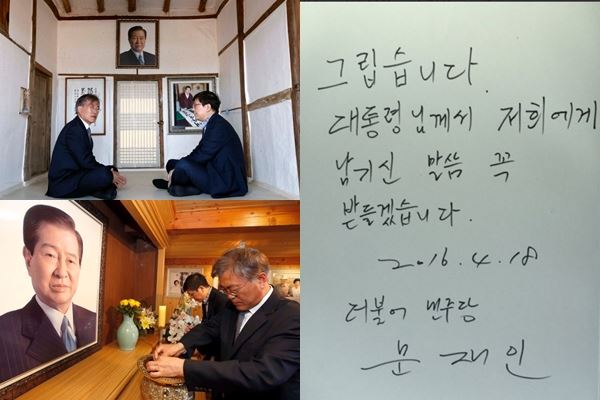 그립습니다.
대통령님께서 저희에게
남기신 말씀 꼭
받들겠습니다.
2016.4.18
더불어 민주당
문재인